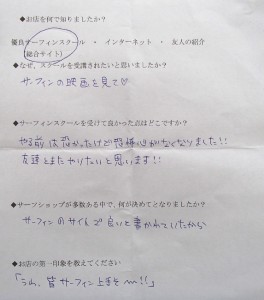 ◆お店を何で知りましたか?
優良サーフィンスクール ・ インターネット ・ 友人の紹介
(総合サイト)
◆なぜ、スクールを受講されたいと思いましたか?
サーフィンの映画を見て♡
◆サーフィンスクールを受けて良かった点はどこですか?
やる前は恐かったけど恐怖心がなくなりました!!
友達とまたやりたいと思います!!
◆サーフショップが多数ある中で、何が決めてとなりましたか?
サーフィンのサイトで良いと書かれていたから
◆お店の第一印象を教えてください
「うわ、皆サーフィン上手そ〜!!」